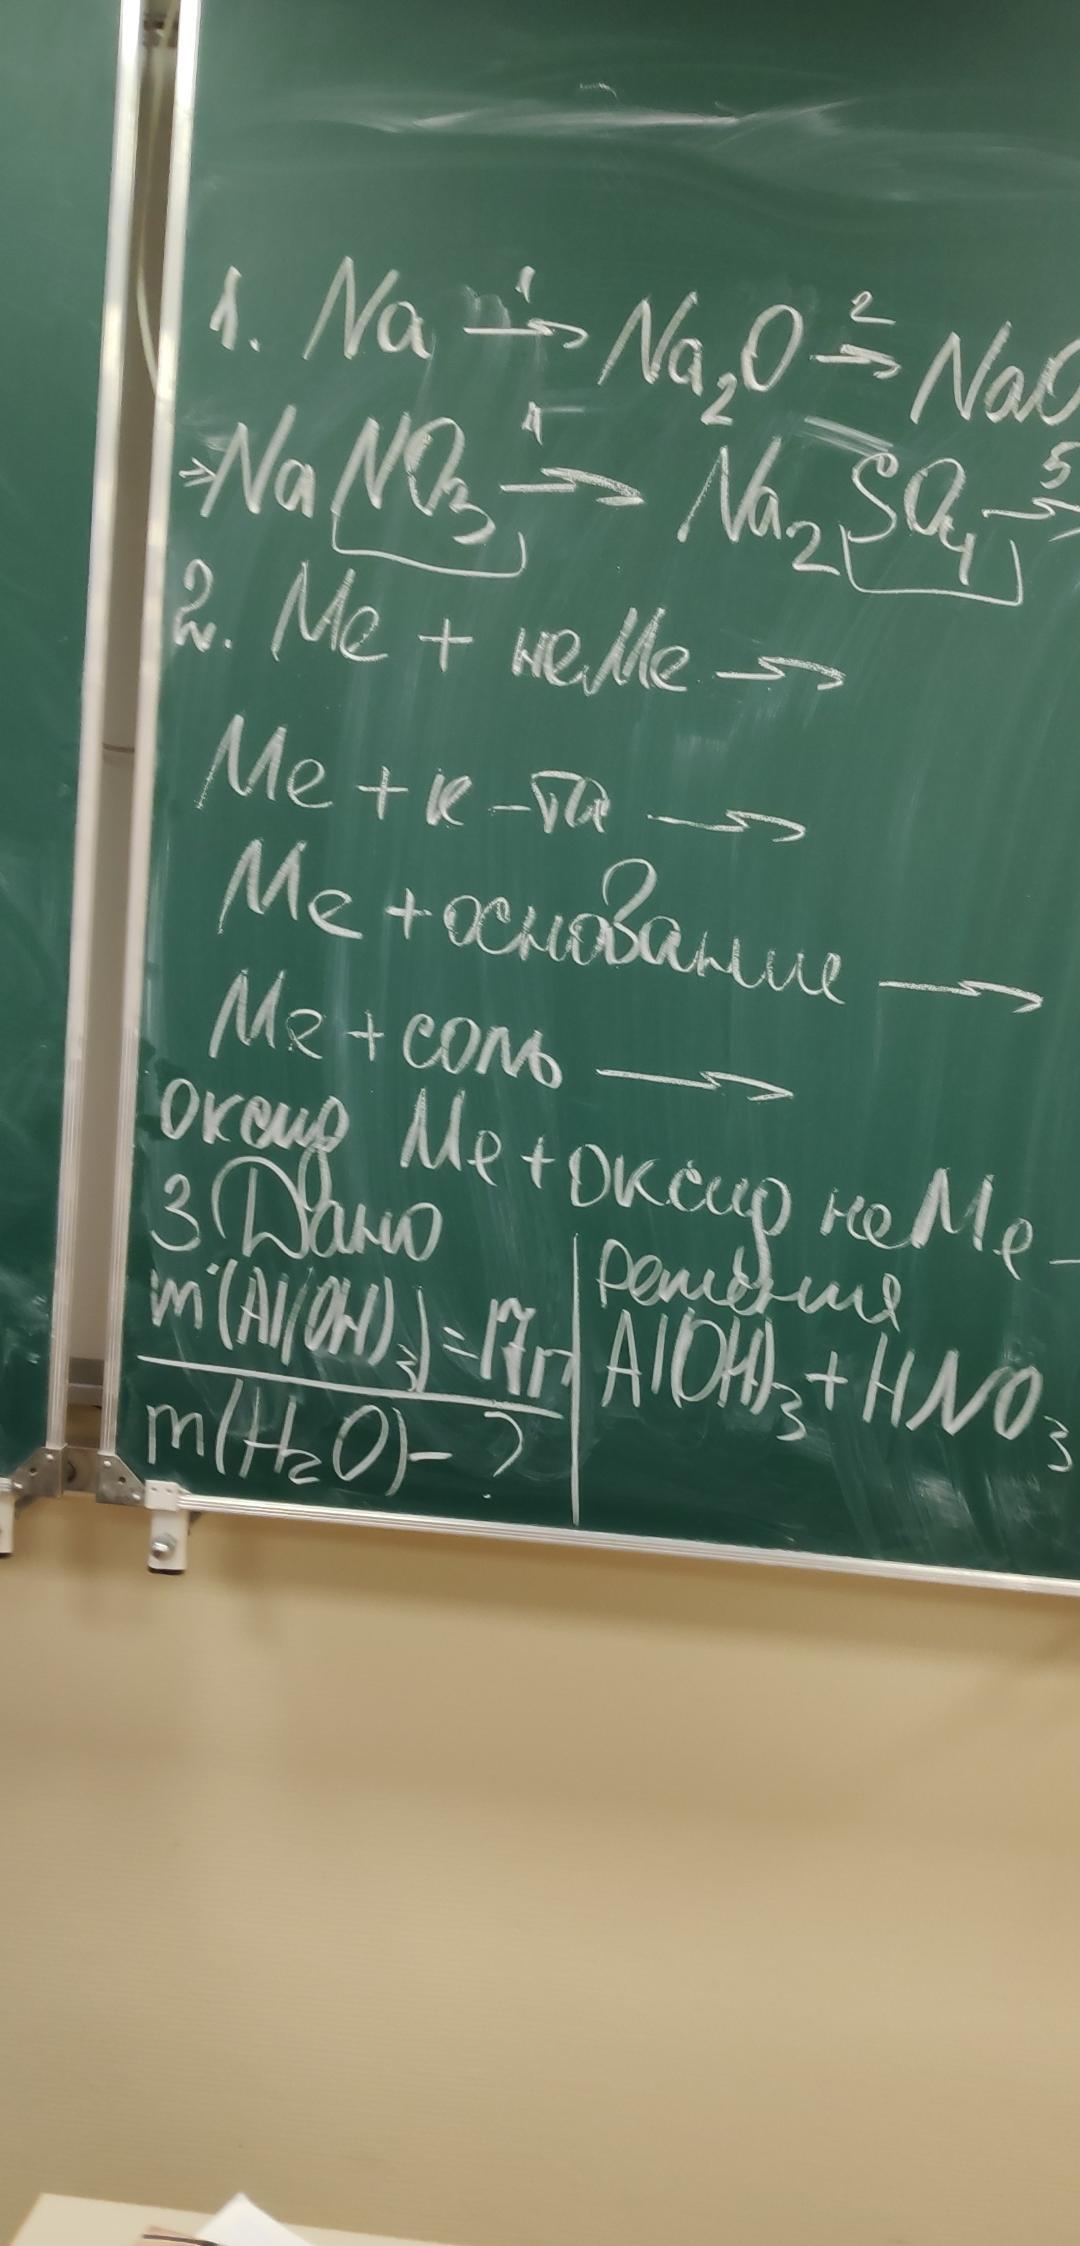 1. Na 1→ Na₂O 2→ NaO
→NaNO₃ 4→ Na₂SO₄ 5→
2. Me + неMe →
Me + к-та →
Me + основание →
Me + соль →
оксид Me + оксид неMe →
3 Дано
m(Al(OH)₃) = 17г
m(H₂O) - ?
решения
Al(OH)₃ + HNO₃